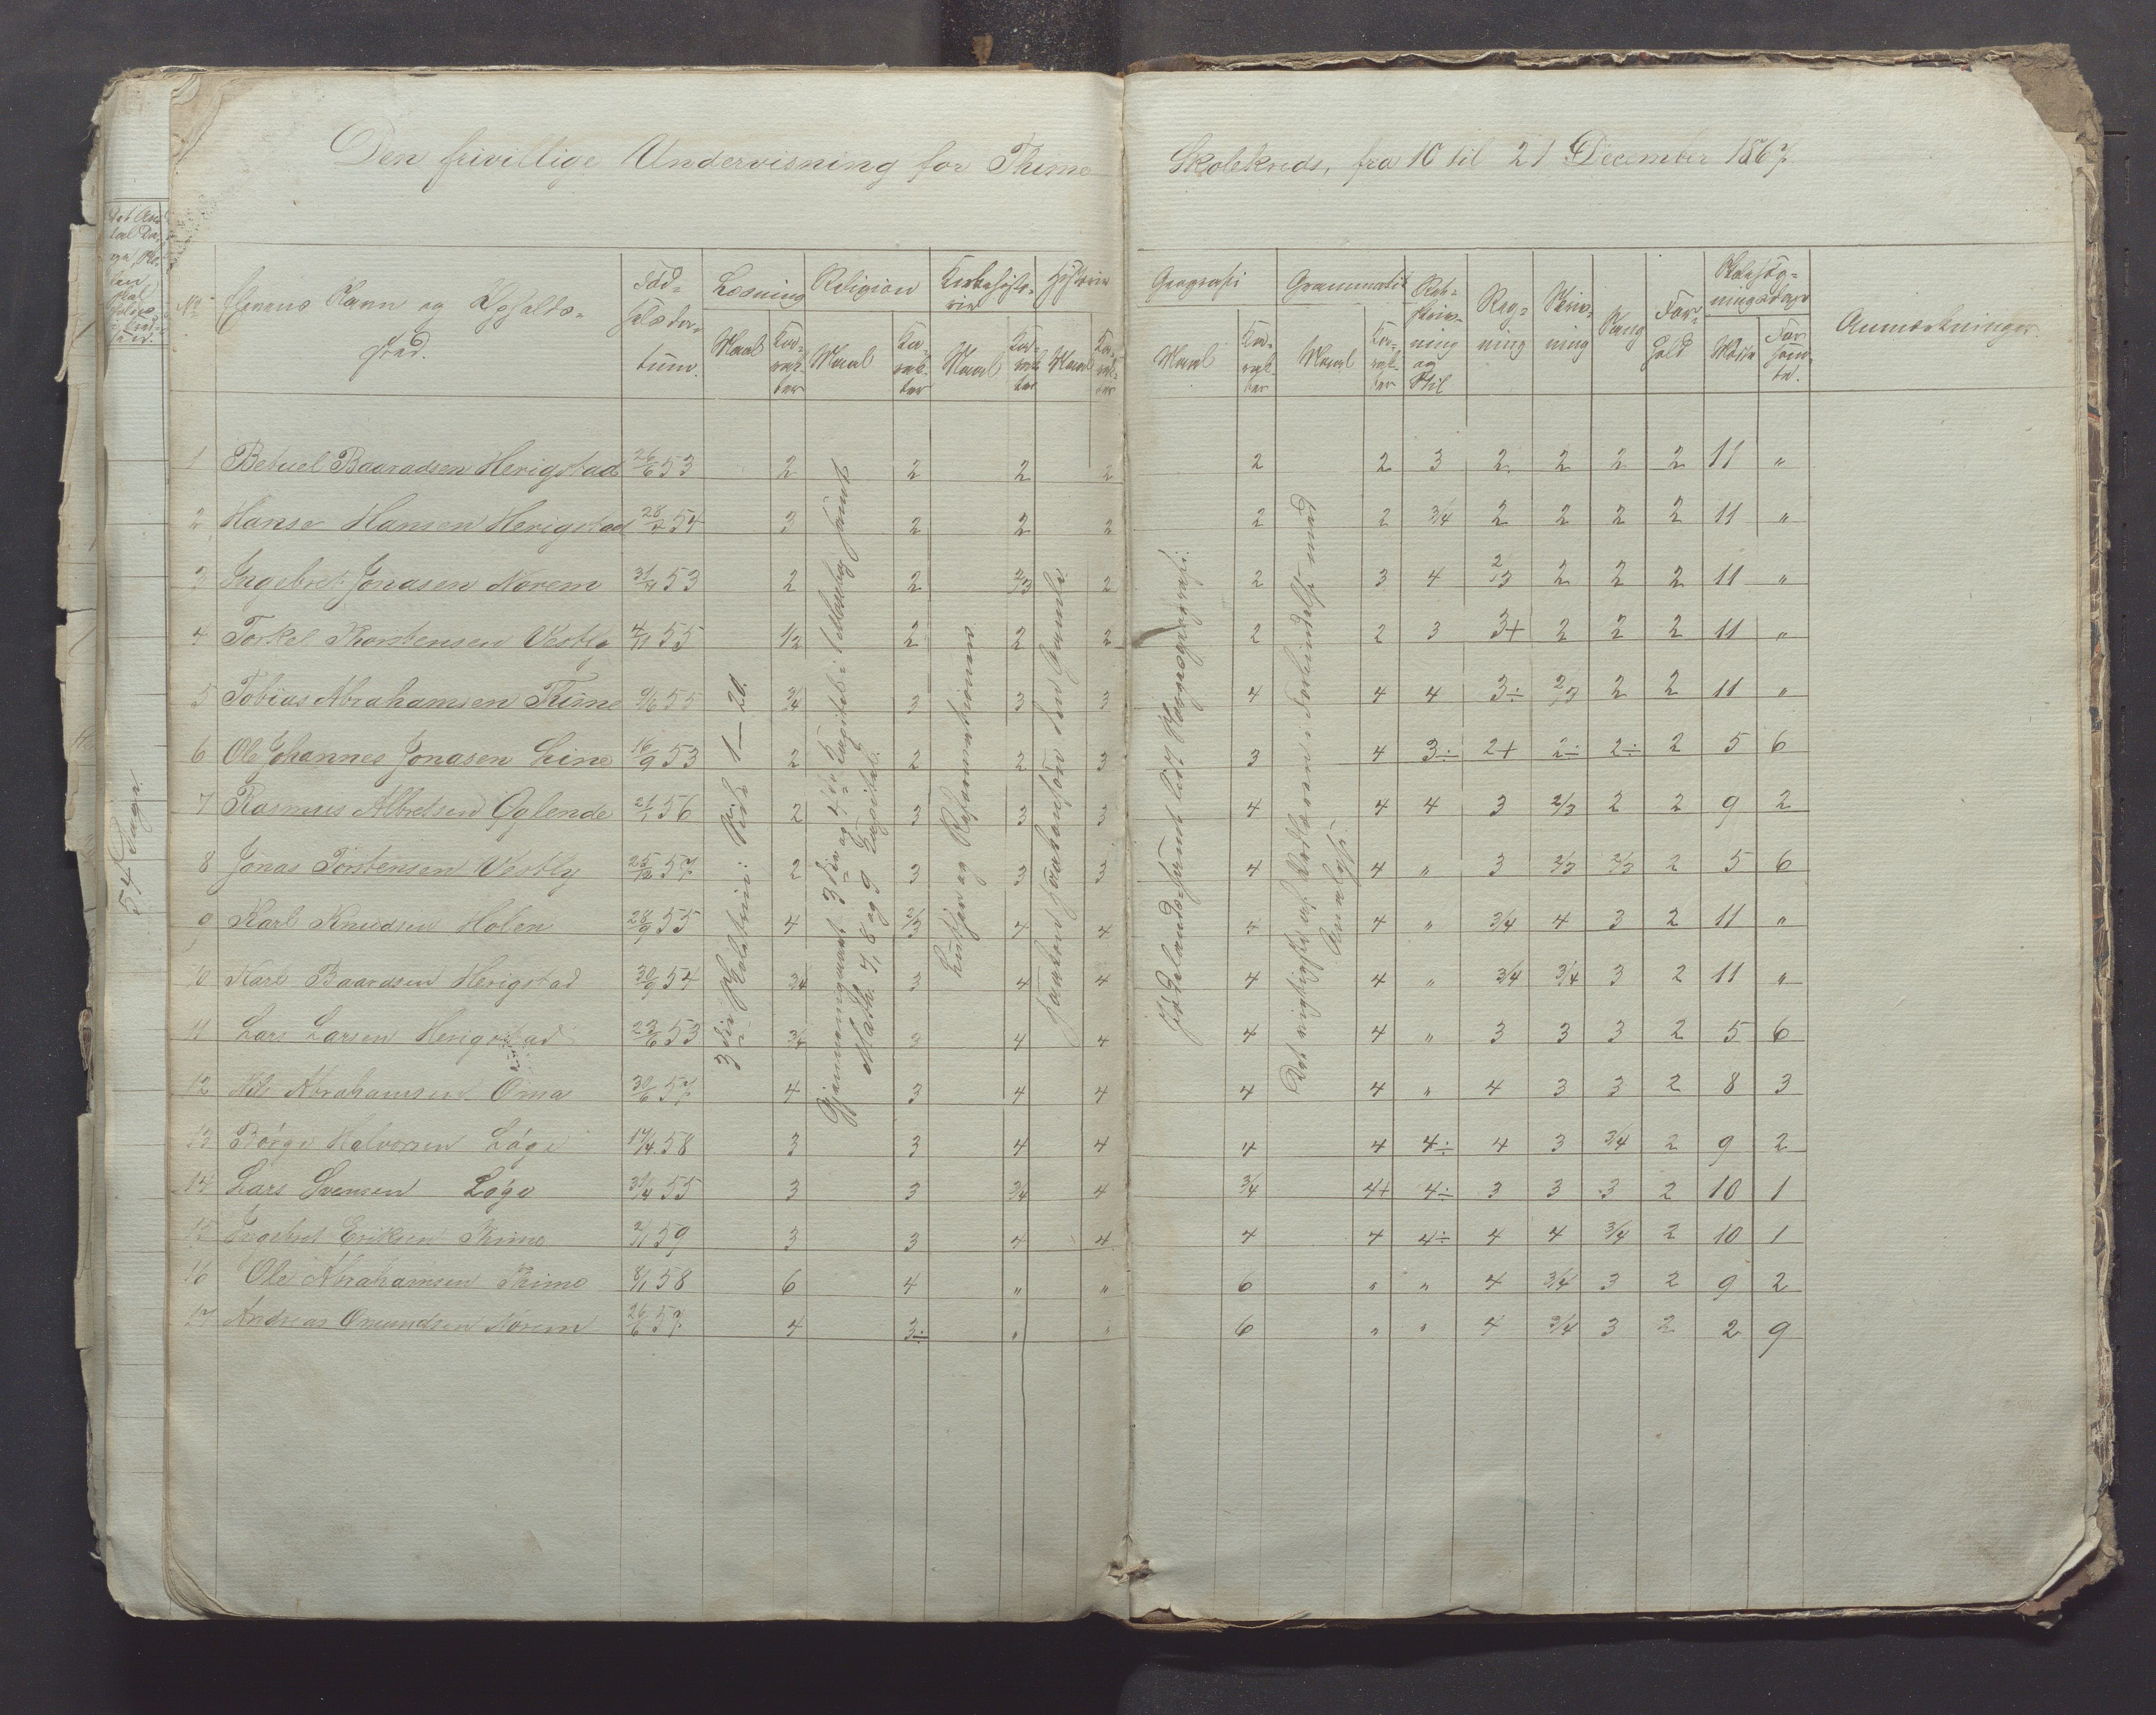 Den frivillige Undervisning for Thime Skolekreds, fra 10 til 21 December 1867.
No Elevens Navn og Opholdssted. Fødselsdatum. Læsning Religion Kirkehistorie Historie Geografi Grammatik Retskrivning og Stil Regning Skrivning Sang Forhold Skolesøgningsdage Anmærkninger
Maal Karakter Maal Karakter Maal Karakter Maal Karakter Maal Karakter Maal Karakter Mødte Forsømte.
1 Betuel Baaradsen Herigstad 26/6 53 2 2 2 2 2 2 3 2 2 2 2 11 "
2 Hanse Hansen Herigstad 28/7 54 3 2 2 2 2 2 3/4 2 2 2 2 11 "
3 Ingebret Jonasen Norem 31/ 53 2 2 2/3 2 2 3 4 2/3 2 2 2 11 "
4 Torkel Thorstensen Vestly 4/11 55 1/2 2 2 2 2 2 3 3+ 2 2 2 11 "
5 Tobias Abrahamsen Thime 55 3/4 3 3 3 4 4 4 3÷ 2/3 2 2 11 "
6 Ole Johannes Jonasen Line 16/9 53 2 2 2 3 3 4 3÷ 2+ 2÷ 2÷ 2 5 6
7 Rasmus Albretsen Øglende 21/1 56 2 3 3 3 4 4 4 3 2/3 2 2 9 2
8 Jonas Torstensen Vestly 25/12 57 2 3 3 3 4 4 " 3 2/3 2/3 2 5 6
9 Karl Knudsen Holen 28/9 55 4 2/3 4 4 4 4 " 3/4 4 3 2 11 "
10 Karl Baardsen Herigstad 30/9 54 3/4 3 4 4 4 4 " 3/4 3/4 3 2 11 "
11 Lars Larsen Herigstad 23/6 53 3/4 3 4 4 4 4 " 3 3 3 2 5 6
12 Nils Abrahamsen Oma 30/6 57 4 3 4 4 4 4 " 4 3 3 2 8 3
13 Börge Halvorsen Löge 17/4 58 3 3 4 4 4 4 4÷ 4 3 3/4 2 9 2
14 Lars Svensen Löge 30/4 55 3 3 3/4 4 3/4 4+ 4÷ 3 3 3 2 10 1
15 Ingebret Eriksen Thime 2/1 59 3 3 4 4 4 4 4÷ 4 4 3/4 2 10 1
16 Ole Abrahamsen Thime 8/1 58 6 4 " " 6 " " 4 3/4 3 2 9 2
17 Andreas Omundsen Norem 26/6 57 4 3÷ " " 6 " " 4 3/4 3 2 2 9
3die Skoletrin: Side 1–20.
Gjennemgaaet 3die og 4de Kapitel i samt
Math. 7, 8 og 9 Kapitel.
Luther og Reformationen
Fædrelandets samt lidt
Det vigtigste af Ordlæren i Forbindelse med
Analyse.
54 Dage.